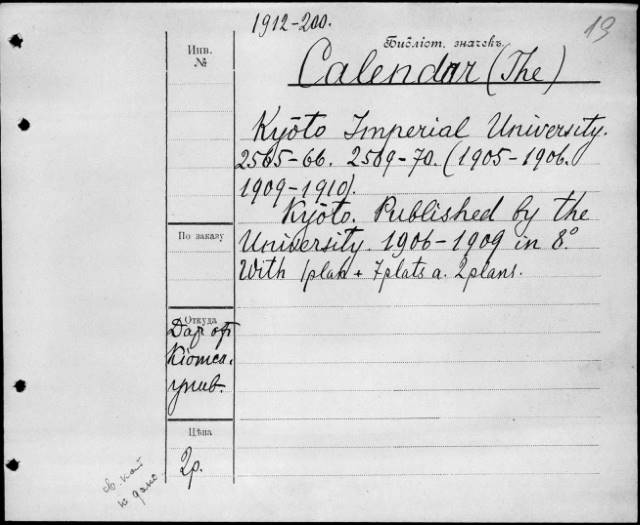 1912-200.
19
Инв.
№
Библіот. значекъ
Calendar (The)
Kyōto Imperial University.
2565-66. 2569-70. (1905-1906.
1909-1910).
Kyōto. Published by the
University. 1906-1909 in 8°.
With 1 plan + 7 plats a. 2 plans.
По заказу
Откуда
Дар от
Кіотск.
унив.
Цѣна
2р.